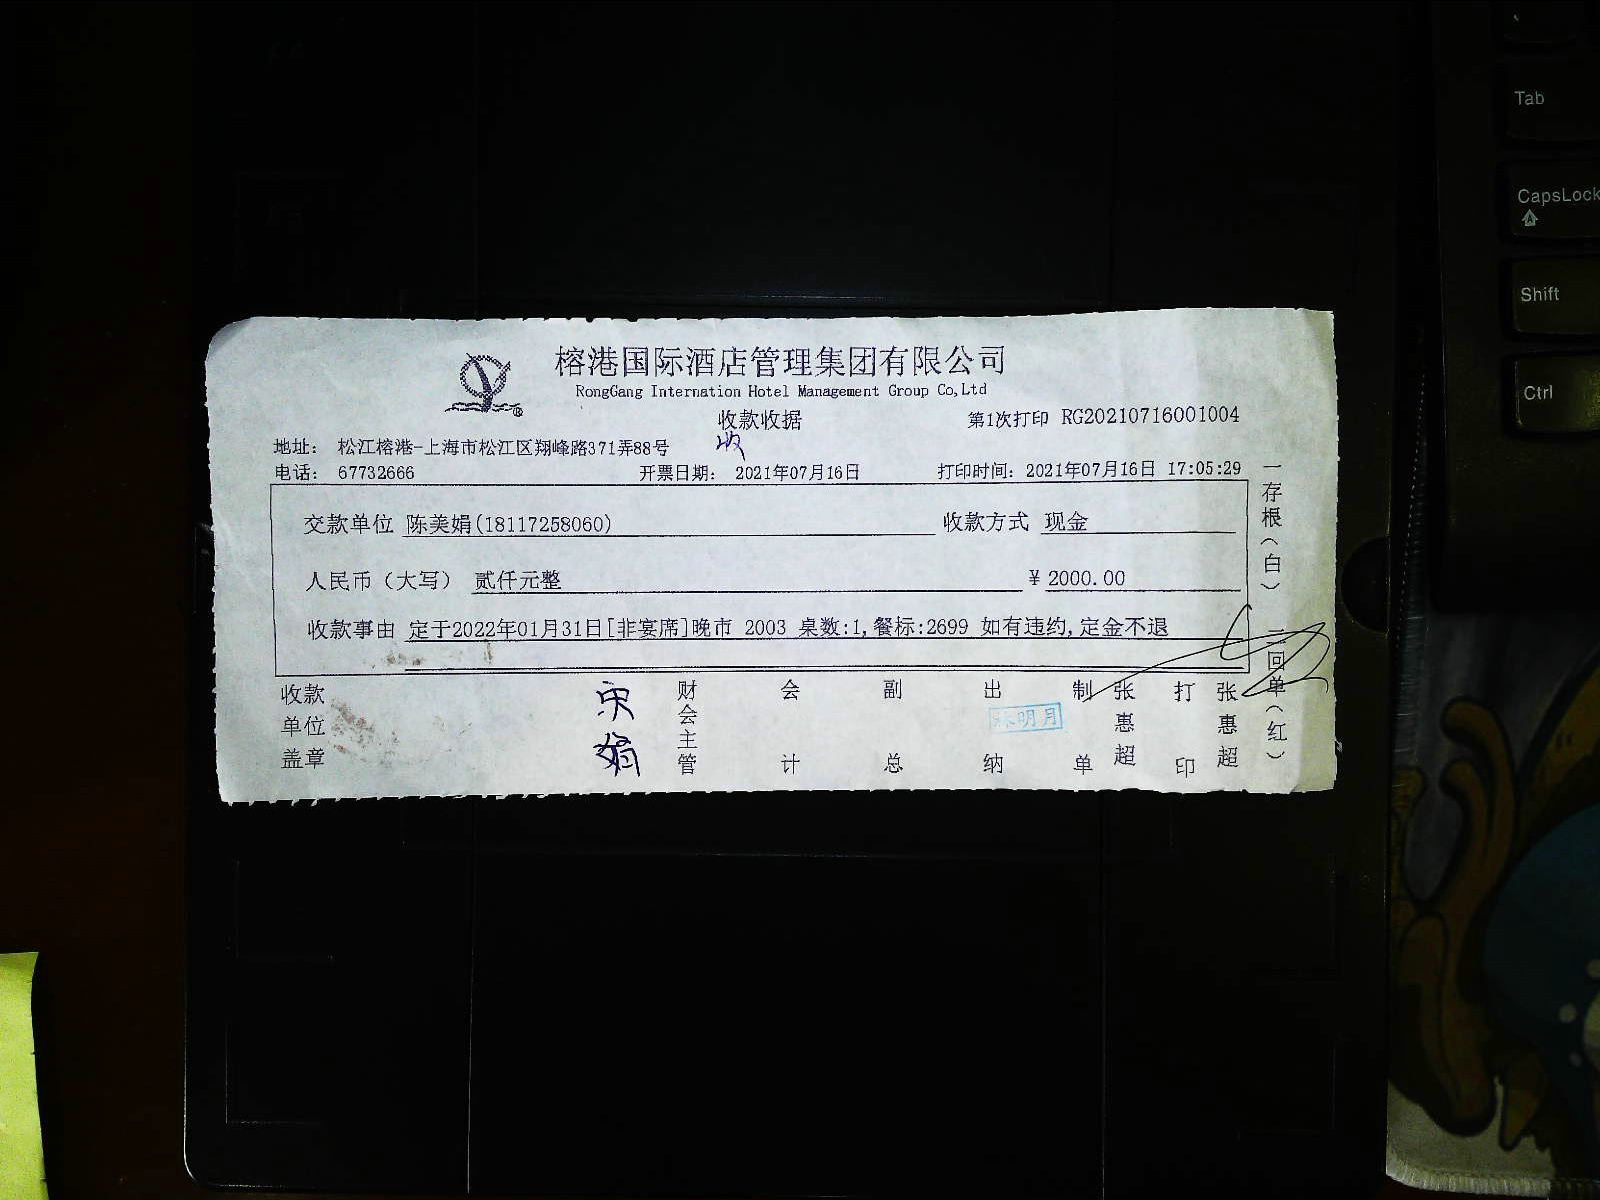 榕港国际酒店管理集团有限公司
RongGang Internation Hotel Management Group Co,Ltd
收款收据
第1次打印 RG20210716001004
地址: 松江榕港-上海市松江区翔峰路371弄88号
收
电话: 67732666 开票日期: 2021年07月16日 打印时间: 2021年07月16日 17:05:29
交款单位 陈美娟(18117258060) 收款方式 现金
人民币（大写） 贰仟元整 ¥ 2000.00
收款事由 定于2022年01月31日[非宴席]晚市 2003 桌数:1,餐标:2699 如有违约,定金不退
收款单位盖章
宋娟
财会主管
会计
副总
出纳
明月
制单
张惠超
打印
张惠超
一存根（白）
二回单（红）
Tab
CapsLock
Shift
Ctrl